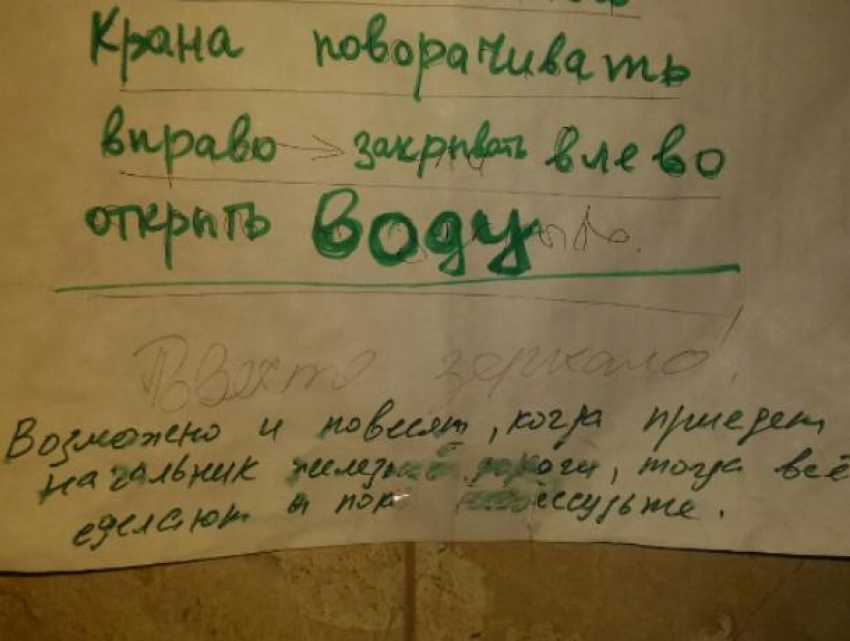 Крана поворачивать
вправо → закрывать влево
открыть воду
Повесте зеркало!
Возможно и повесят, когда приедет
начальник железной дороги, тогда всё
сделают а пока